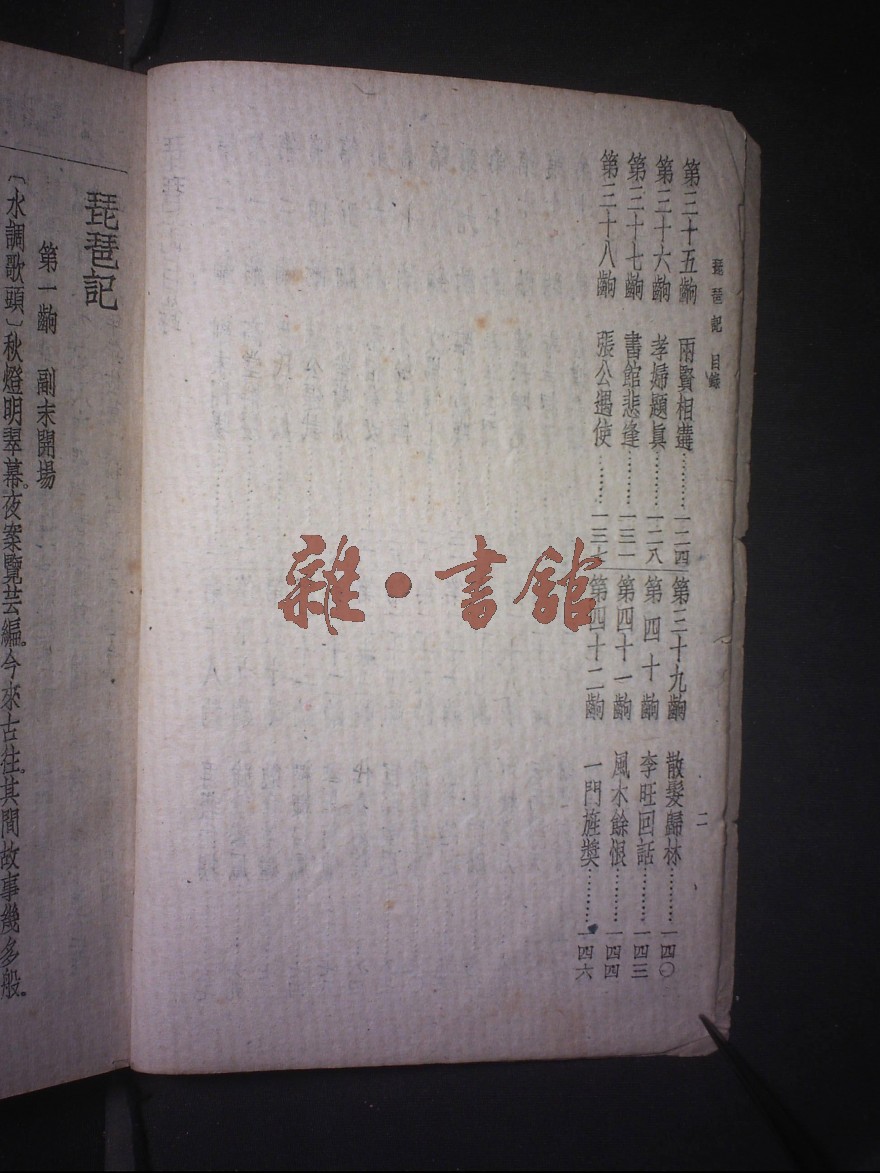 琵琶記 目錄
二
第三十五齣 兩賢相遘………一二四
第三十六齣 孝婦題眞………一二八
第三十七齣 書館悲逢………一三一
第三十八齣 張公遇使………一三七
第三十九齣 散髮歸林………一四〇
第四十齣 李旺回話………一四三
第四十一齣 風木餘恨………一四四
第四十二齣 一門旌獎………一四六
雜·書館
琵琶記
第一齣 副末開場
〔水調歌頭〕秋燈明翠幕。夜案覽芸編。今來古往。其間故事幾多般。